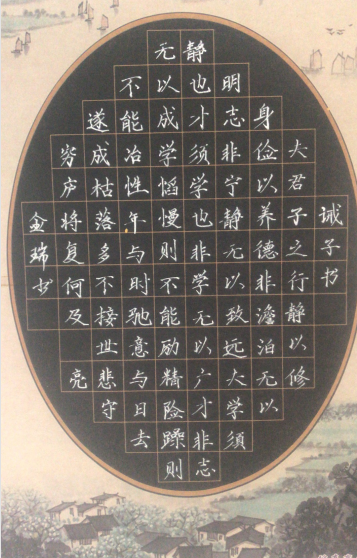 诫子书
夫君子之行静以修
身俭以养德非澹泊无以
明志非宁静无以致远夫学须
静也才须学也非学无以广才非志
无以成学慆慢则不能励精险躁则
不能冶性年与时驰意与日去
遂成枯落多不接世悲守
穷庐将复何及亮
金瑞书